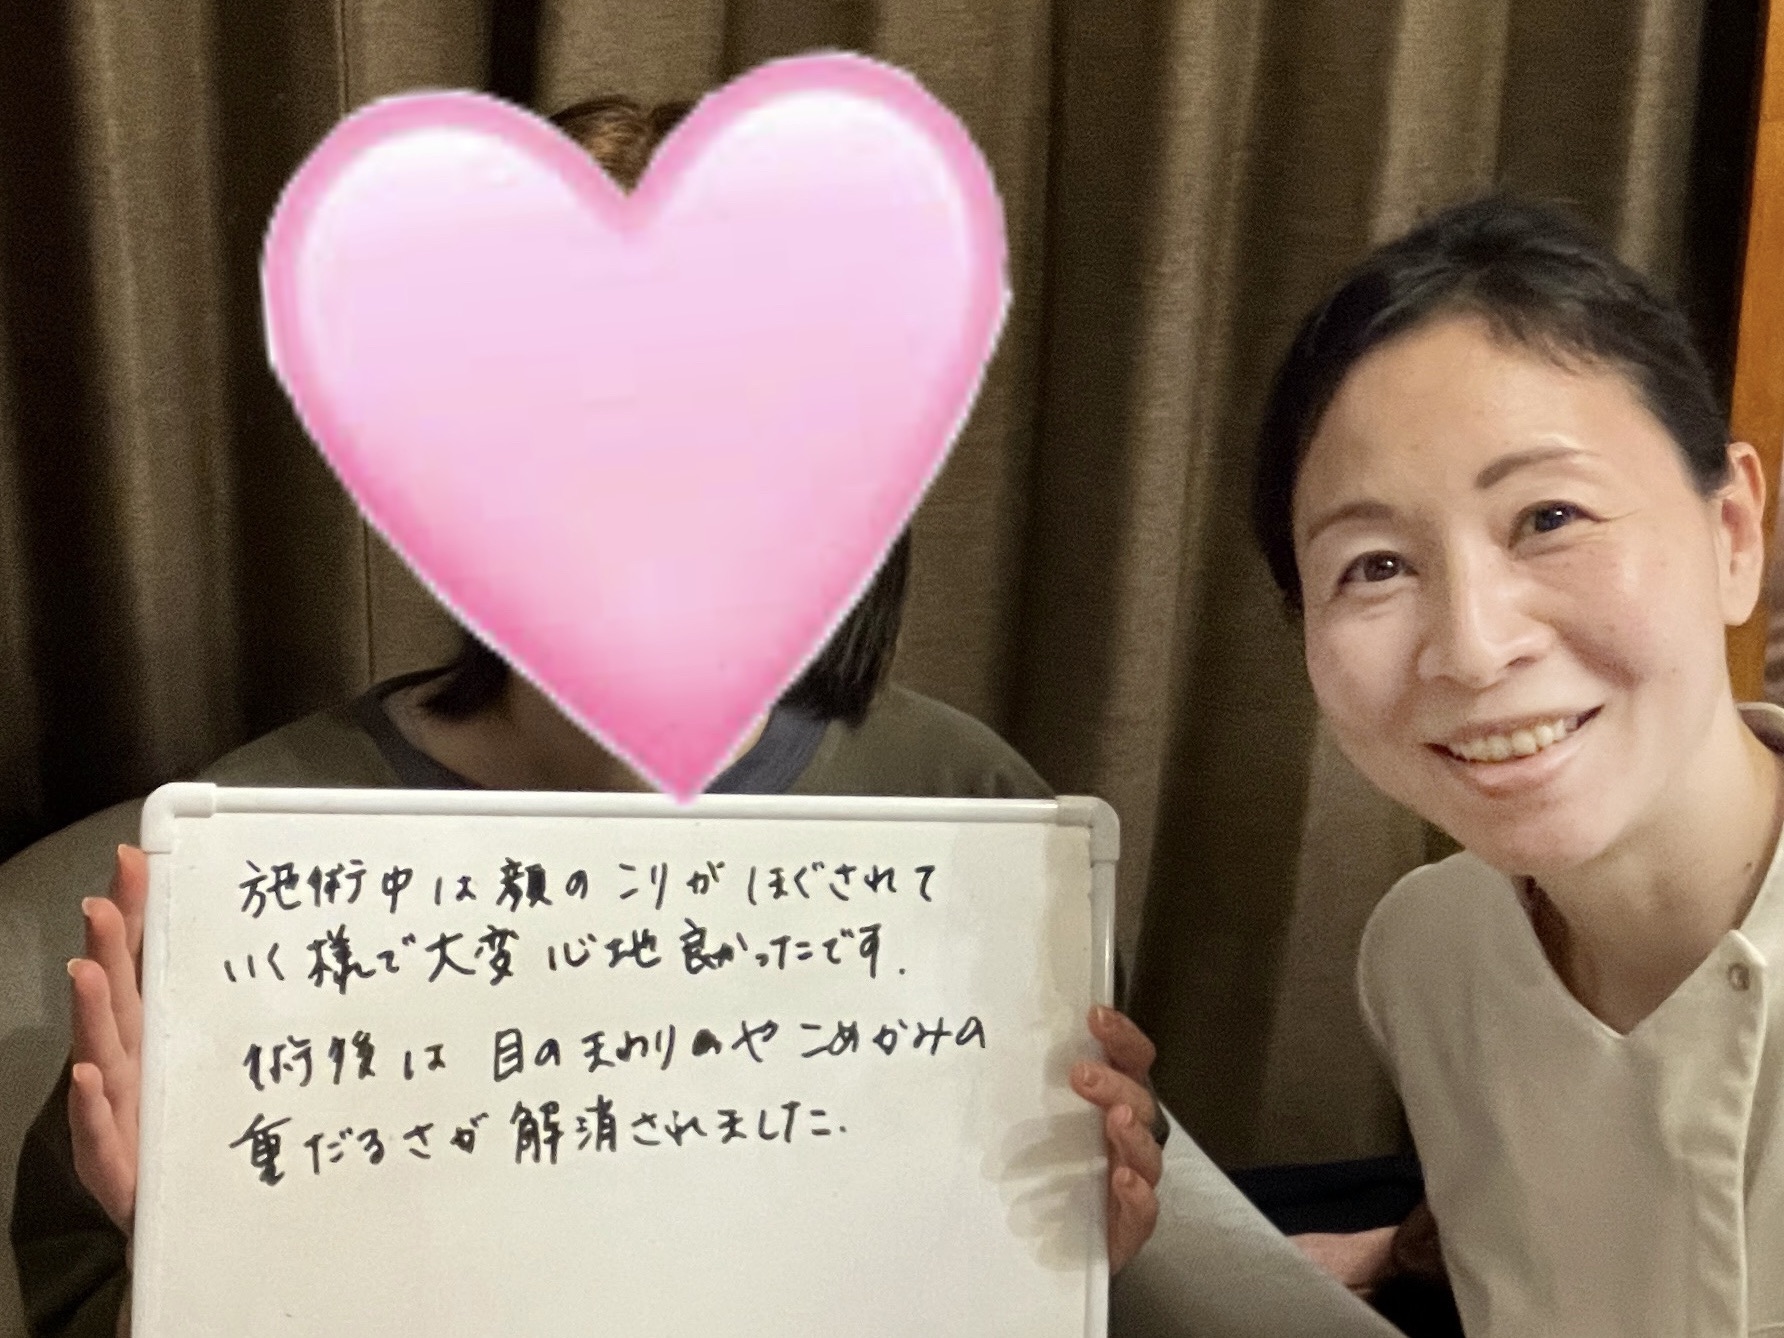 施術中は顔のこりがほぐされて
いく様で大変心地良かったです.
術後は目のまわりのやこめかみの
重だるさが解消されました.